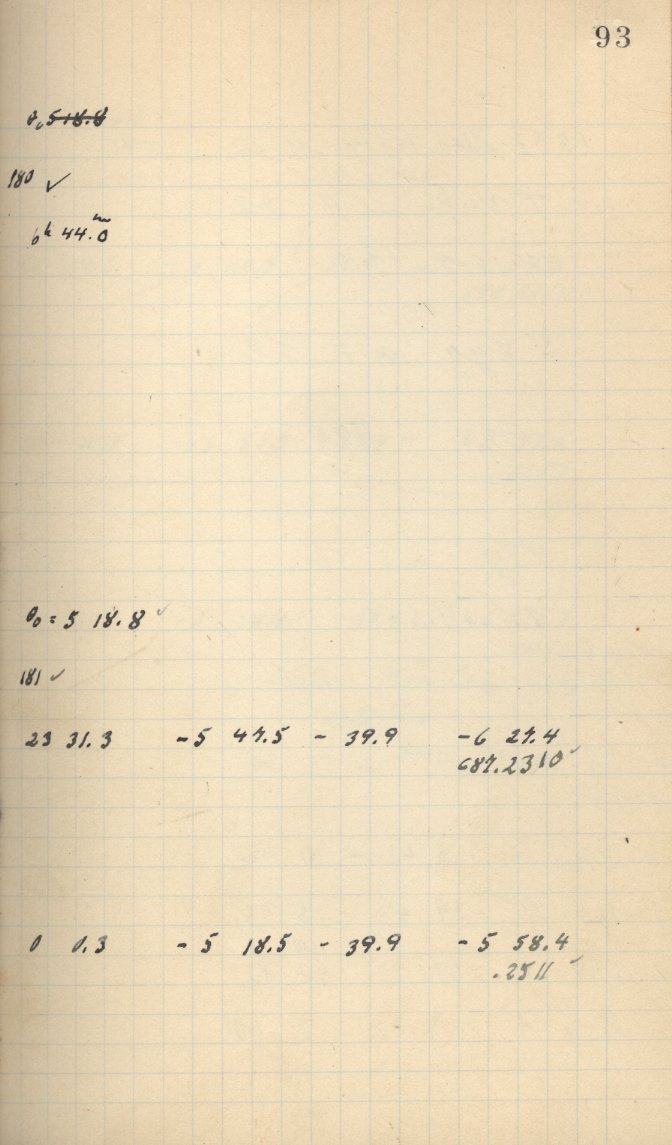 93
θ₀ 5 18.8
180 ✓
6ʰ 44.0ᵐ
θ₀ = 5 18.8 ✓
181 ✓
23 31.3 - 5 47.5 - 39.9 - 6 27.4
687.2310 ✓
0 0.3 - 5 18.5 - 39.9 - 5 58.4
.2511 ✓